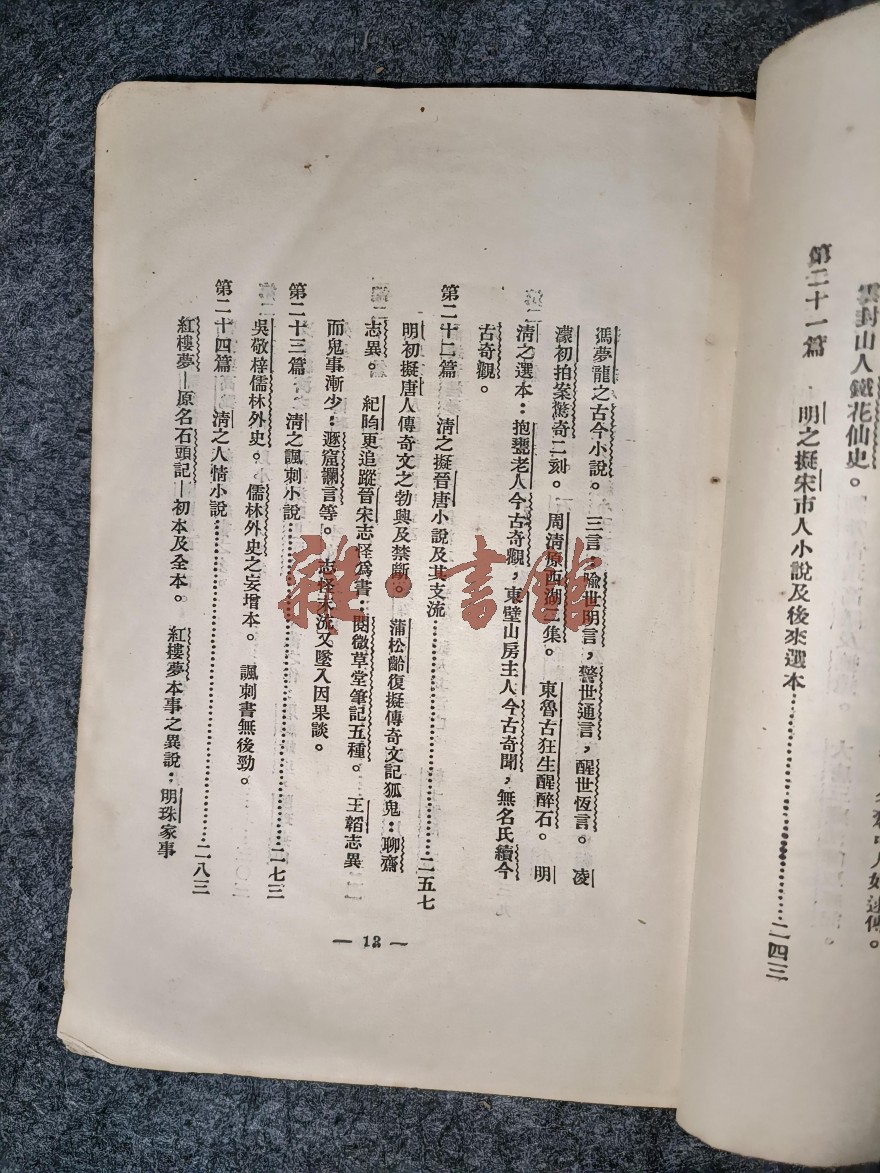 雲封山人鐵花仙史。
第二十一篇　明之擬宋市人小說及後來選本…………二四三
馮夢龍之古今小說。　三言，喻世明言，警世通言，醒世恆言。　凌
濛初拍案驚奇二刻。　周淸原西湖二集。　東魯古狂生醒醉石。　明
淸之選本：抱甕老人今古奇觀，東壁山房主人今古奇聞，無名氏續今
古奇觀。
第二十二篇　淸之擬晉唐小說及其支流…………二五七
明初擬唐人傳奇文之勃興及禁斷。　蒲松齡復擬傳奇文記狐鬼：聊齋
志異。　紀昀更追蹤晉宋志怪爲書：閱微草堂筆記五種。　王韜志異
而鬼事漸少：遯窟讕言等。　志怪末流又墜入因果談。
第二十三篇　淸之諷刺小說…………二七三
吳敬梓儒林外史。　儒林外史之妄增本。　諷刺書無後勁。
第二十四篇　淸之人情小說…………二八三
紅樓夢—原名石頭記—初本及全本。　紅樓夢本事之異說：明珠家事
— 12 —
雜·書館